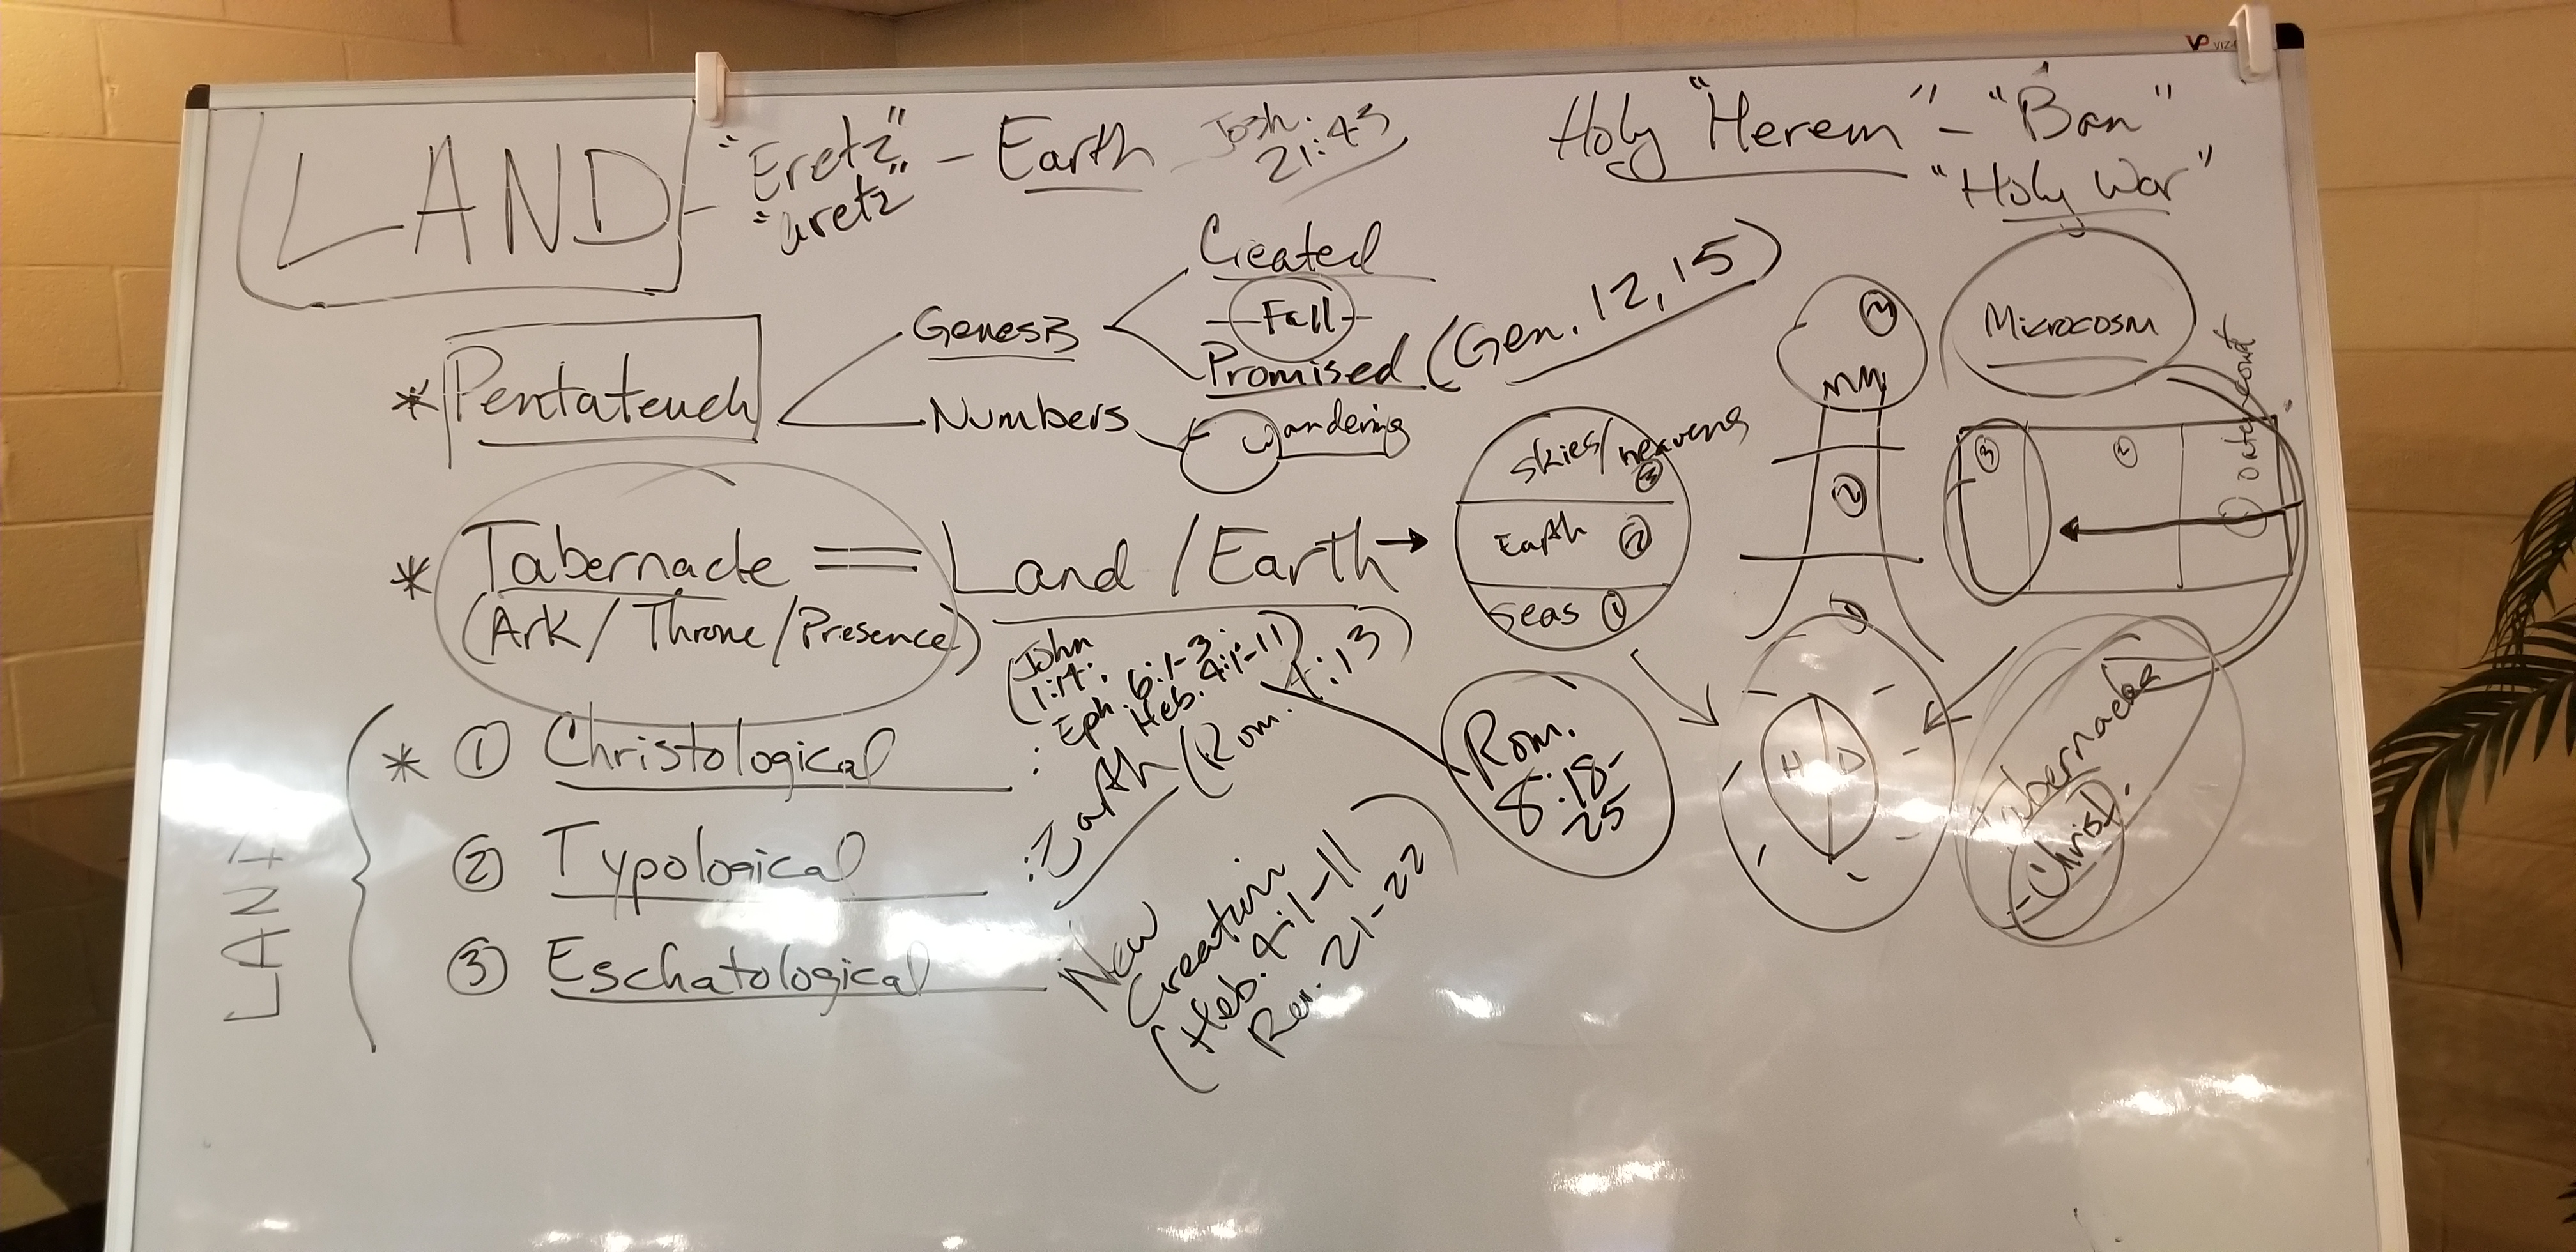 LAND - "Eretz" - Earth Josh. 21:43
"aretz"
Holy "Herem" - "Ban"
"Holy War"
* Pentateuch
Genesis
Created
Fall
Promised (Gen. 12, 15)
Numbers
Wandering
* Tabernacle = Land / Earth →
(Ark / Throne / Presence)
skies/heavens ③
Earth ②
Seas ①
③
②
①
Microcosm
③ ② ① outer court
(John
1:14;
Eph. 6:1-3;
Heb. 4:1-11)
LAND
* ① Christological
② Typological
: Earth (Rom. 4:13)
Rom.
8:18-
25
③ Eschatological
New
Creation
(Heb. 4:1-11
Rev. 21-22
H D
Tabernacle
- Christ.
VIZ-